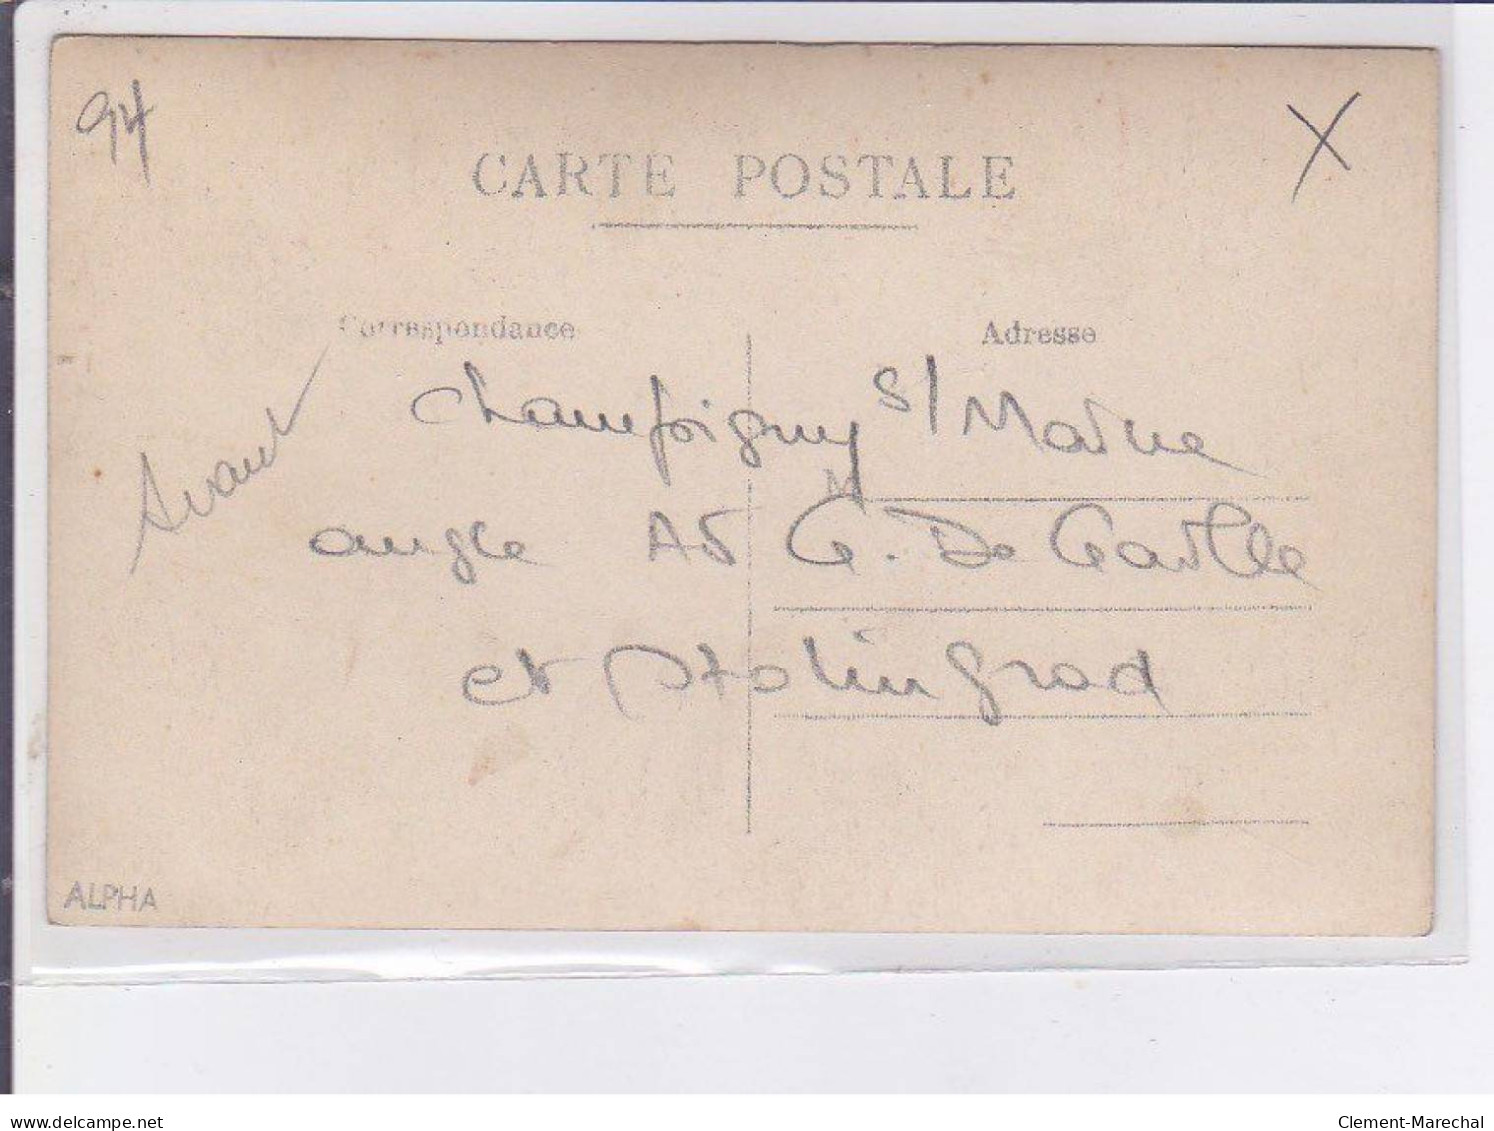 94
X
CARTE POSTALE
Correspondance
Adresse
Avant
Champigny s/ Marne
angle Av G. De Gaulle
et Stalingrad
ALPHA
delcampe.net
Clement-Marechal